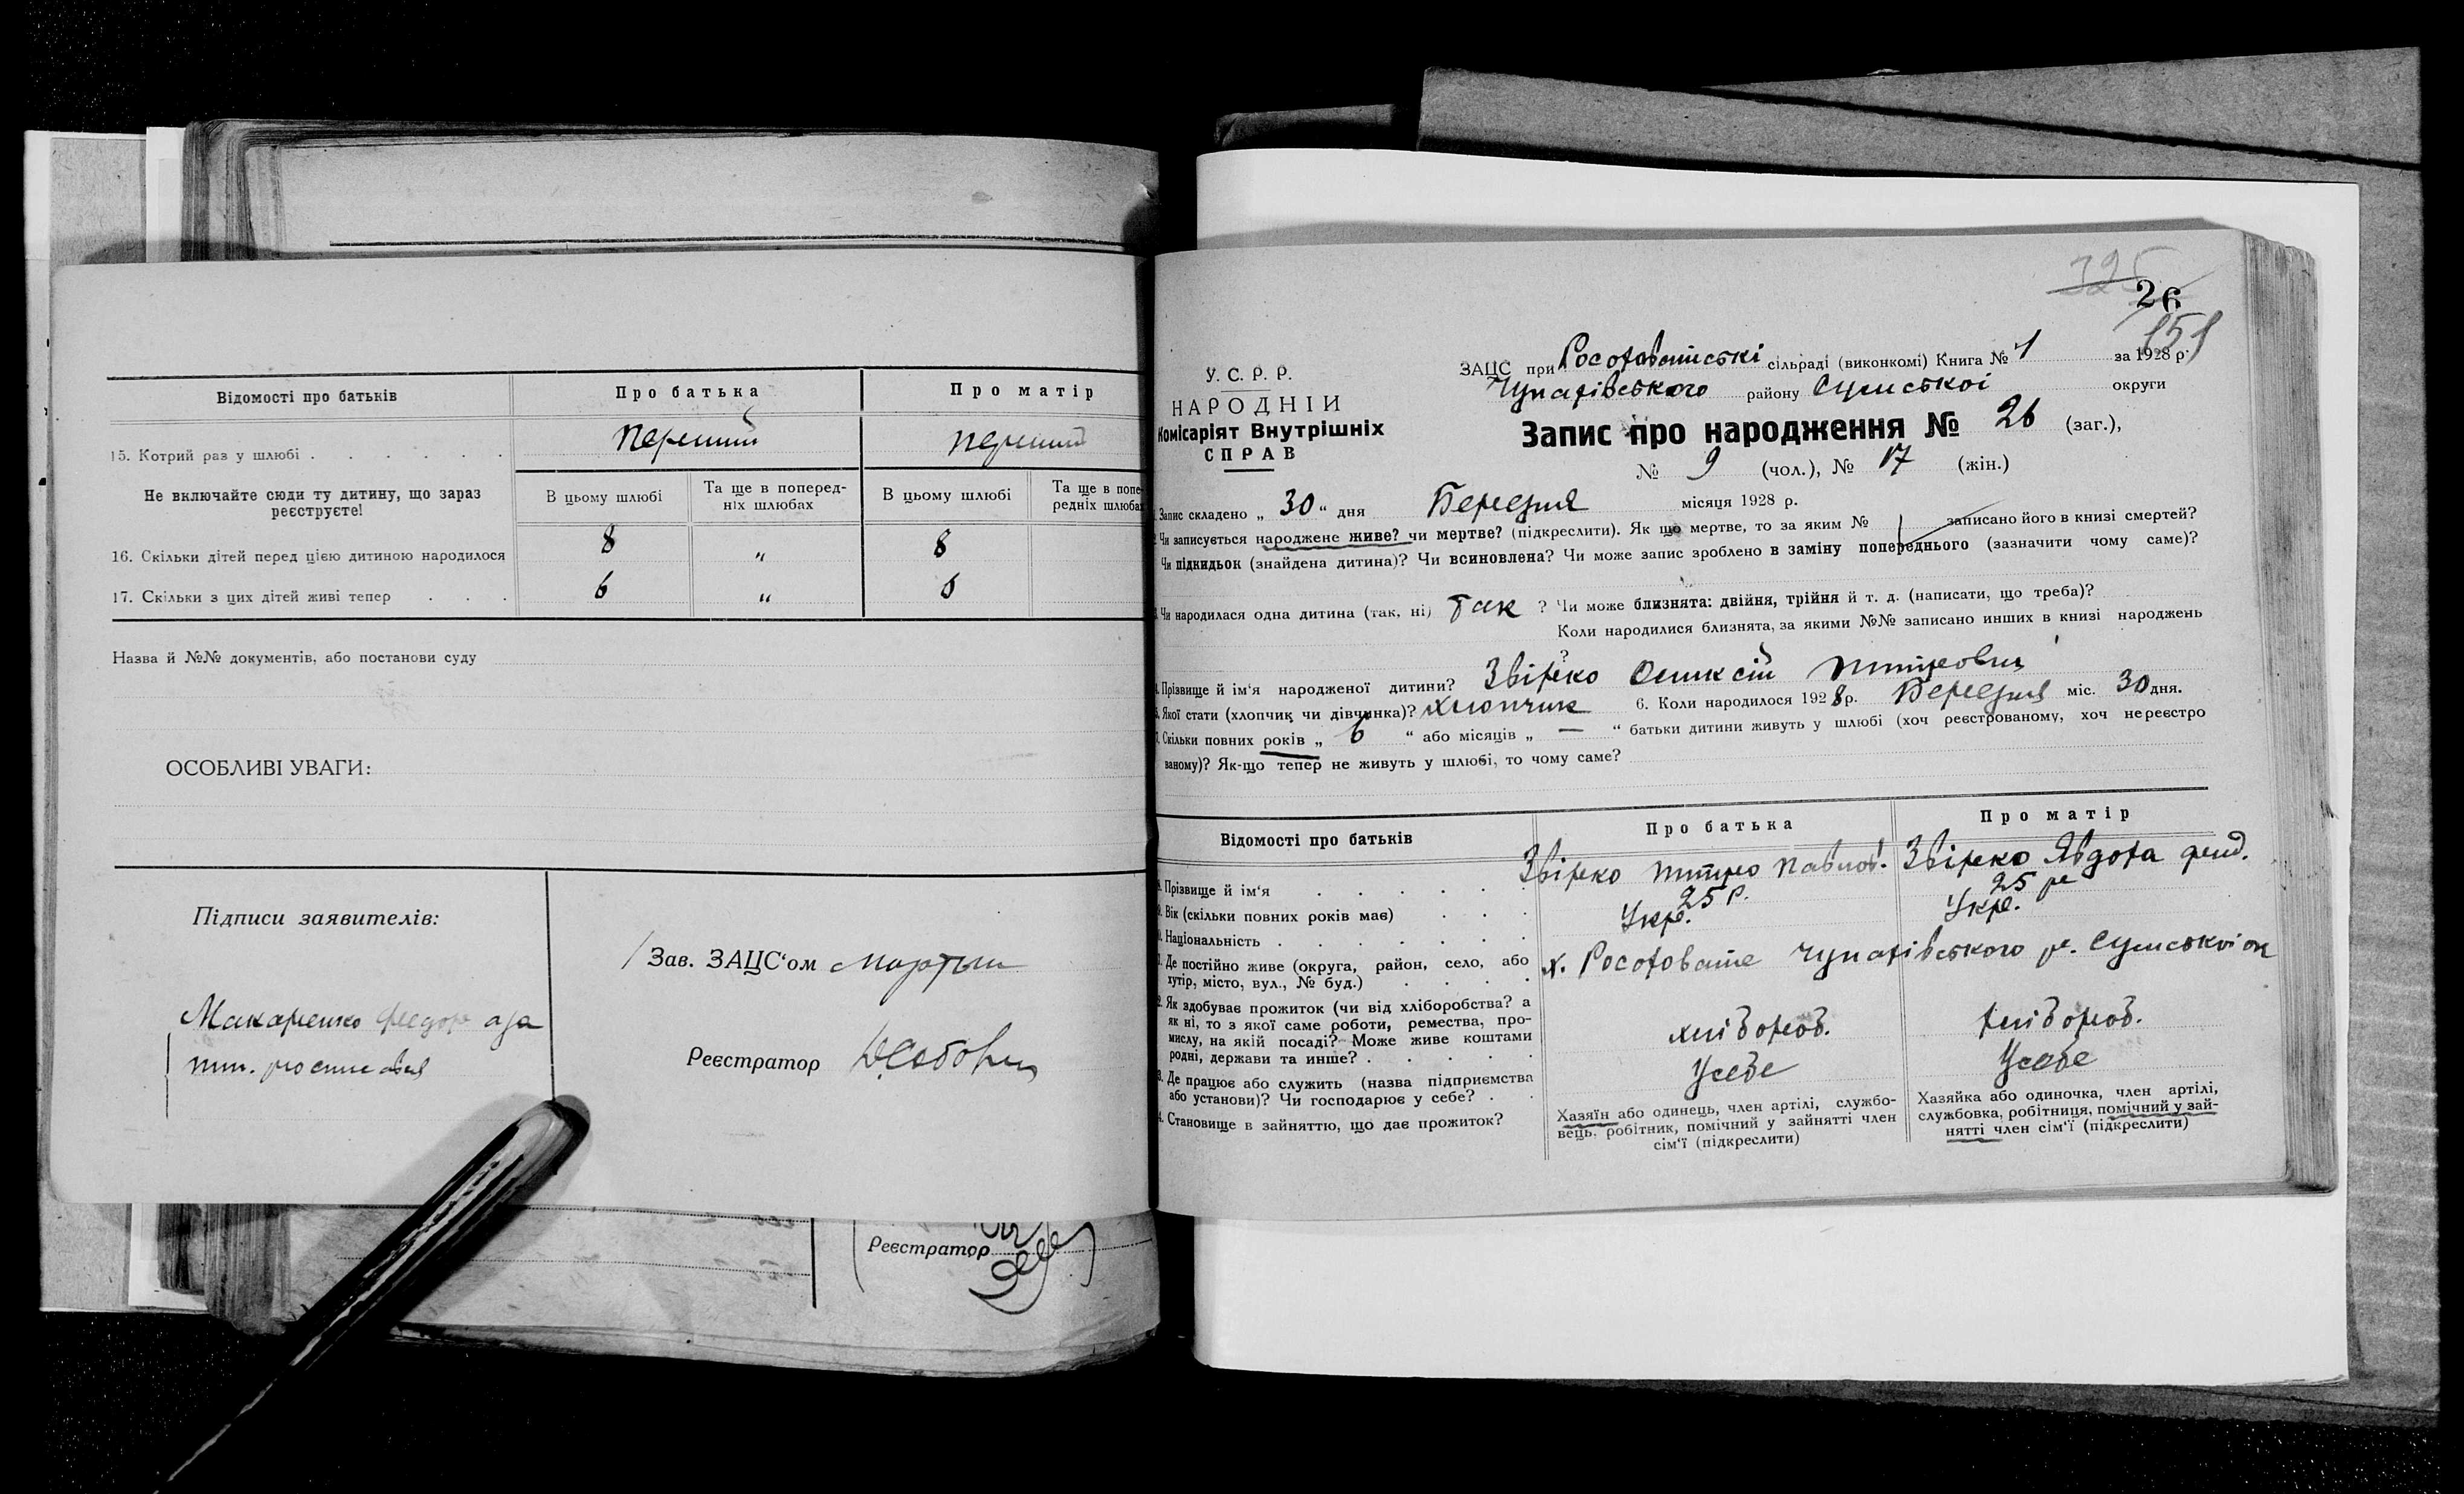 Відомості про батьків
Про батька
Про матір
15. Котрий раз у шлюбі
Перший
перший
Не включайте сюди ту дитину, що зараз
реєструєте!
В цьому шлюбі
Та ще в поперед-
ніх шлюбах
В цьому шлюбі
Та ще в попе-
редніх шлюбах
16. Скільки дітей перед цією дитиною народилося
8 „ 8
17. Скільки з цих дітей живі тепер
6 „
Назва й №№ документів, або постанови суду
ОСОБЛИВІ УВАГИ:
Підписи заявителів:
Макаренко Федор а за
Зав. ЗАЦС'ом
Реєстратор
Реєстратор
325
26
151
У. С. Р. Р.
НАРОДНІЙ
Комісаріят Внутрішніх
СПРАВ
ЗАЦС при Росоховатській сільраді (виконкомі) Книга № 1 за 1928 р.
Чупахівського району Сумської округи
Запис про народження № 26 (заг.),
№ 9 (чол.), № 17 (жін.)
Запис складено „ 30 “ дня Березня місяця 1928 р.
Чи записується народжене живе? чи мертве? (підкреслити). Як що мертве, то за яким № записано його в книзі смертей?
Чи підкидьок (знайдена дитина)? Чи всиновлена? Чи може запис зроблено в заміну попереднього (зазначити чому саме)?
Чи народилася одна дитина (так, ні) так ? Чи може близнята: двійня, трійня й т. д. (написати, що треба)?
Коли народилися близнята, за якими №№ записано инших в книзі народжень
?
Прізвище й ім'я народженої дитини? Звірко Олексій
Якої стати (хлопчик чи дівчинка)? хлопчик 6. Коли народилося 1928 р. Березня міс. 30 дня.
Скільки повних років „ 6 “ або місяців „ — “ батьки дитини живуть у шлюбі (хоч реєстрованому, хоч нереєстро
ваному)? Як-що тепер не живуть у шлюбі, то чому саме?
Відомості про батьків
Про батька
Про матір
Прізвище й ім'я
Звірко Павлов.
Звірко Явдоха
9. Вік (скільки повних років має)
25 р.
25 р
Національність
Укр.
Укр.
Де постійно живе (округа, район, село, або
хутір, місто, вул., № буд.)
х. Росоховате Чупахівського р. Сумської ок
Як здобуває прожиток (чи від хліборобства? а
як ні, то з якої саме роботи, ремества, про-
мислу, на якій посаді? Може живе коштами
родні, держави та инше?
хлібороб.
хлібороб.
Де працює або служить (назва підприємства
або установи)? Чи господарює у себе?
Усебе
Усебе
Становище в зайняттю, що дає прожиток?
Хазяїн або одинець, член артілі, службо-
вець, робітник, помічний у зайнятті член
сім'ї (підкреслити)
Хазяйка або одиночка, член артілі,
службовка, робітниця, помічний у зай-
нятті член сім'ї (підкреслити)